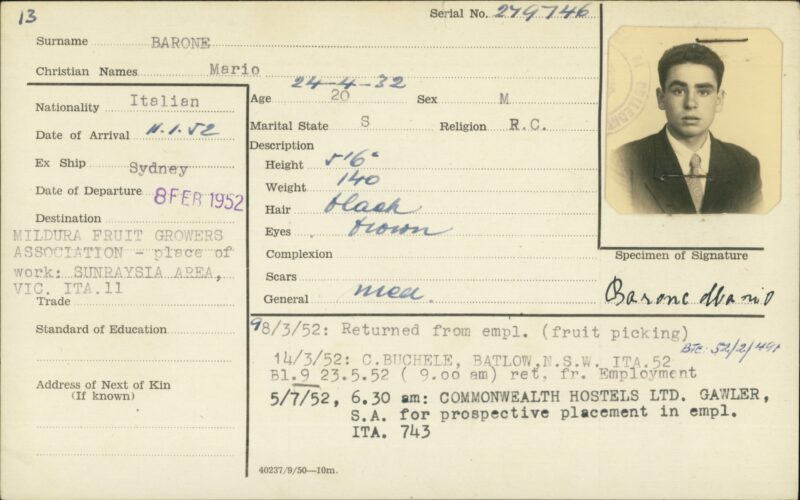 13
Serial No. 279746
Surname BARONE
Christian Names Mario
24-4-32
Nationality Italian
Age 20 Sex M
Date of Arrival 11.1.52
Marital State S Religion R.C.
Description
Ex Ship Sydney
Height 5'6"
Date of Departure 8 FEB 1952
Weight 140
Hair black
Destination
Eyes brown
MILDURA FRUIT GROWERS
ASSOCIATION - place of
work: SUNRAYSIA AREA,
VIC. ITA.11
Complexion
Scars
General med.
Trade
Standard of Education
Address of Next of Kin
(If known)
Specimen of Signature
Barone Mario
98/3/52: Returned from empl. (fruit picking)
14/3/52: C.BUCHELE, BATLOW,N.S.W. ITA.52
Bl.9 23.5.52 ( 9.00 am) ret. fr. Employment
5/7/52, 6.30 am: COMMONWEALTH HOSTELS LTD. GAWLER,
S.A. for prospective placement in empl.
ITA. 743
40237/9/50—10m.